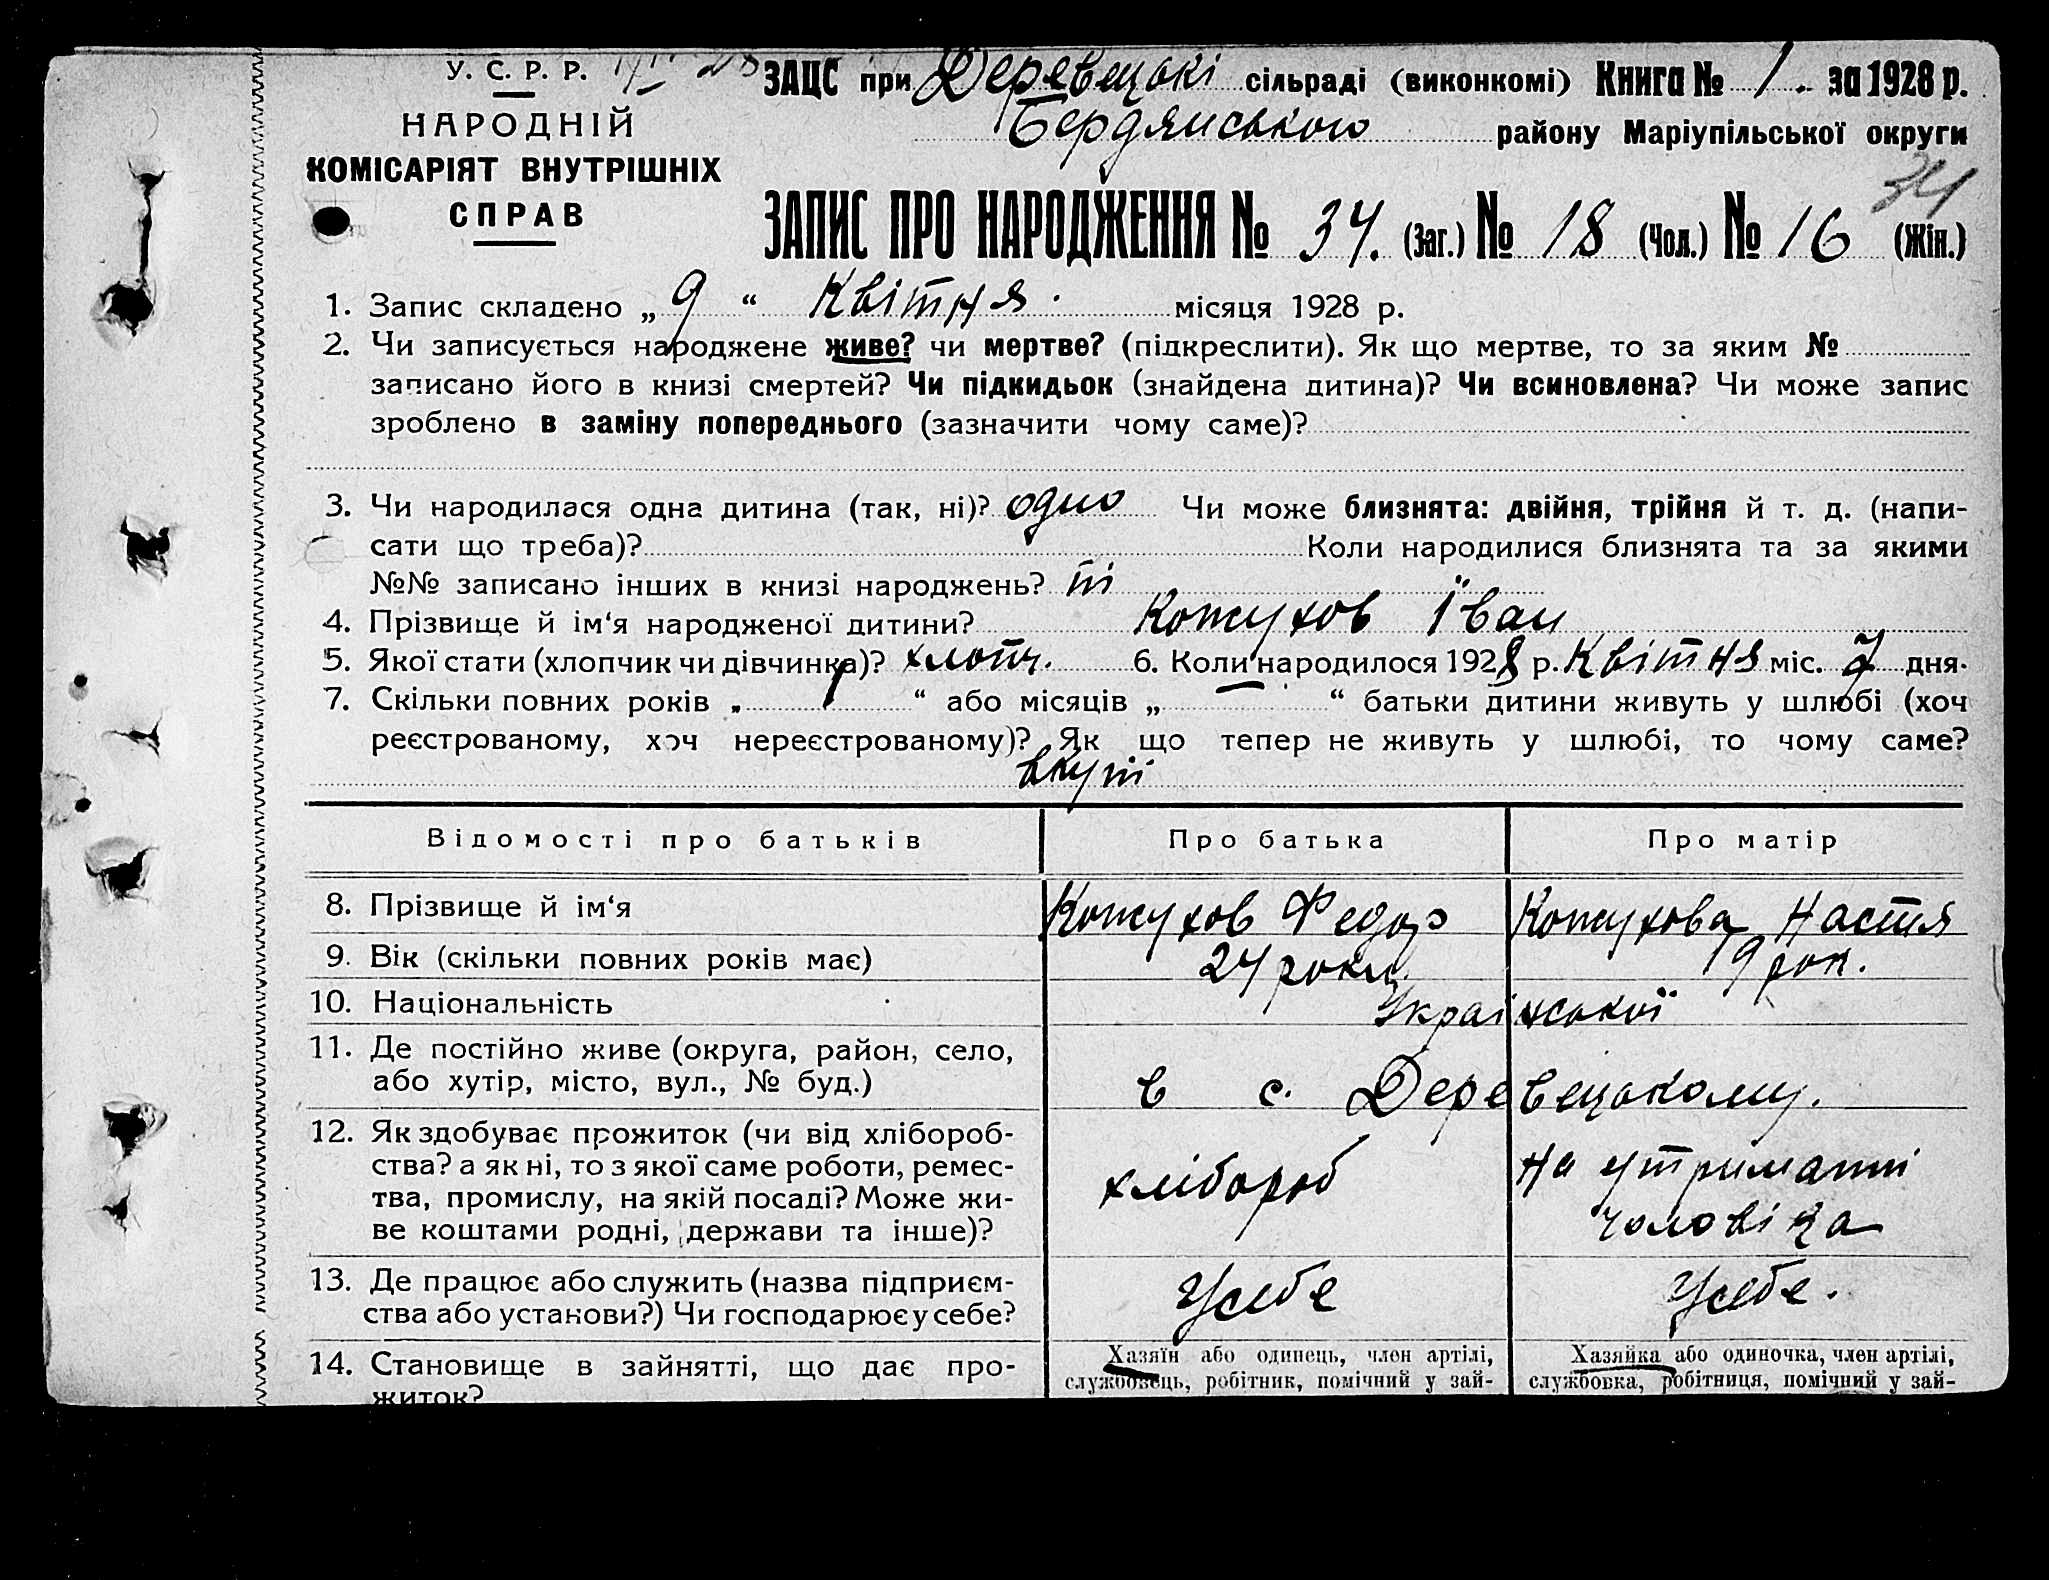 У. С. Р. Р.
НАРОДНІЙ
КОМІСАРІЯТ ВНУТРІШНІХ
СПРАВ
ЗАЦС при Деревецькі сільраді (виконкомі) Книга № 1. за 1928 р.
Бердянського району Маріупільської округи
34
ЗАПИС ПРО НАРОДЖЕННЯ № 34. (Заг.) № 18 (Чол.) № 16 (Жін.)
1. Запис складено „ 9 “ Квітня місяця 1928 р.
2. Чи записується народжене живе? чи мертве? (підкреслити). Як що мертве, то за яким №
записано його в книзі смертей? Чи підкидьок (знайдена дитина)? Чи всиновлена? Чи може запис
зроблено в заміну попереднього (зазначити чому саме)?
3. Чи народилася одна дитина (так, ні)? одно Чи може близнята: двійня, трійня й т. д. (напи-
сати що треба)? Коли народилися близнята та за якими
№№ записано інших в книзі народжень? ні
4. Прізвище й ім‘я народженої дитини? Кожухов Іван
5. Якої стати (хлопчик чи дівчинка)? хлопч. 6. Коли народилося 1928 р. Квітня міс. 7 дня.
7. Скільки повних років „ 1 “ або місяців „ — “ батьки дитини живуть у шлюбі (хоч
реєстрованому, хоч нереєстрованому)? Як що тепер не живуть у шлюбі, то чому саме?
вкупі
Відомості про батьків Про батька Про матір
8. Прізвище й ім‘я Кожухов Федор Кожухова Настя
9. Вік (скільки повних років має) 24 роки. 19 рок.
10. Національність Української
11. Де постійно живе (округа, район, село,
або хутір, місто, вул., № буд.) в с. Деревецькому.
12. Як здобуває прожиток (чи від хлібороб-
ства? а як ні, то з якої саме роботи, ремес-
тва, промислу, на якій посаді? Може жи-
ве коштами родні, держави та інше)?
хлібороб
на утриманні
чоловіка
13. Де працює або служить (назва підприєм-
ства або установи?) Чи господарює у себе?
Усебе Усебе.
14. Становище в зайнятті, що дає про-
житок?
Хазяїн або одинець, член артілі,
службовець, робітник, помічний у зай-
Хазяйка або одиночка, член артілі,
службовка, робітниця, помічний у зай-